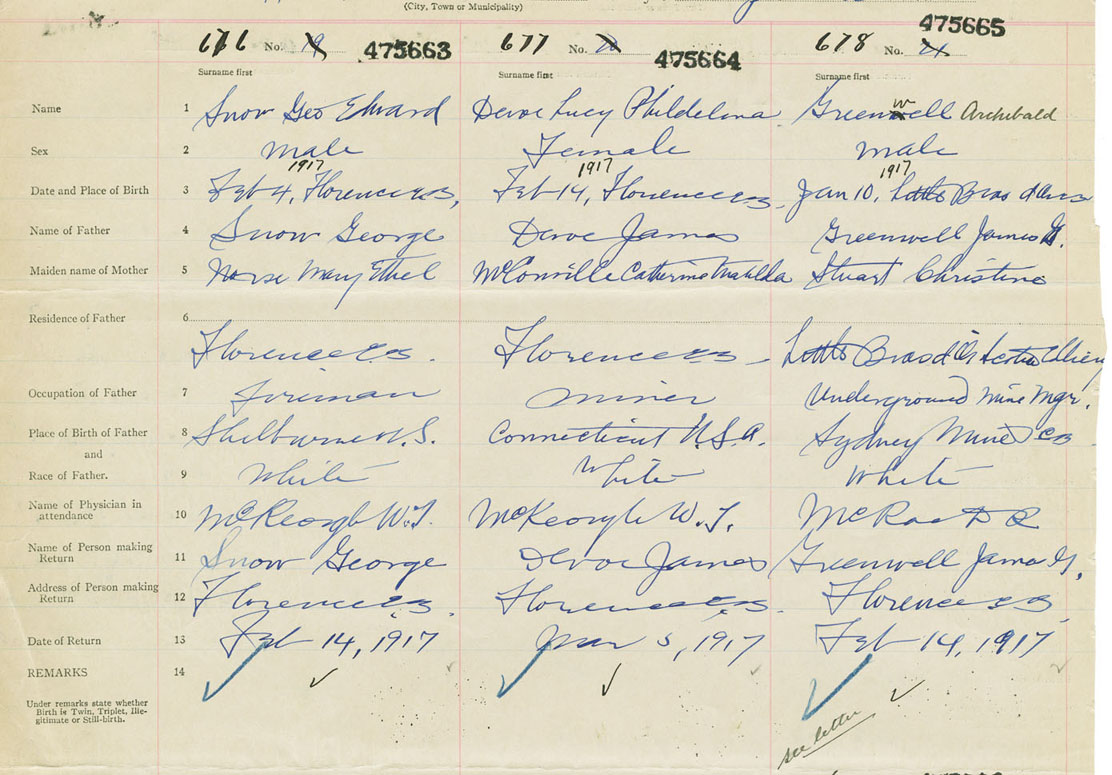 (City, Town or Municipality)
676 No. 19 475663 677 No. 20 475664 678 No. 21 475665
Surname first Surname first Surname first
Name 1 Snow Geo Edward Devoe Lucy Phildelina Greenwell Archibald
w
Sex 2 male Female male
1917 1917 1917
Date and Place of Birth 3 Feb 4, Florence CB, Feb 14, Florence CB. Jan 10, Little Bras d'Or CB
Name of Father 4 Snow George Devoe James Greenwell James G.
Maiden name of Mother 5 Mary Ethel McConville Catherine Matilda Stuart Christine
Residence of Father 6
Florence CB. Florence CB Little Bras d'Or Scotia Colliery
Occupation of Father 7 Fireman miner Underground Mine Mgr.
Place of Birth of Father 8 Shelburne N.S. Connecticut U.S.A. Sydney Mines CB
and
Race of Father. 9 White White White
Name of Physician in
attendance 10 McKeough W.J. McKeough W.J. McRae D R
Name of Person making
Return 11 Snow George Devoe James Greenwell James G.
Address of Person making
Return 12 Florence CB. Florence CB. Florence CB
Date of Return 13 Feb 14, 1917 Mar 5, 1917 Feb 14, 1917
REMARKS 14
Under remarks state whether
Birth is Twin, Triplet, Ille-
gitimate or Still-birth.
see letter